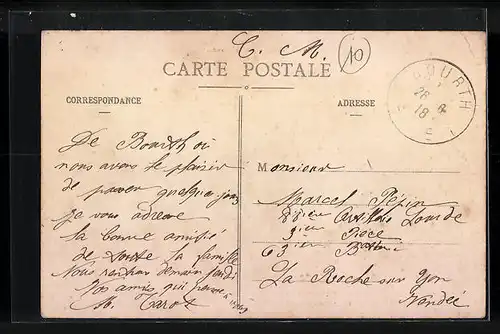 C. M.
10
CARTE POSTALE
CORRESPONDANCE
ADRESSE
BOURTH
26
18
De Bourth où
nous avons le plaisir
de passer quelques jours
je vous adresse
la bonne amitié
de toute la famille
Nous rentrons demain jeudi
Vos amis qui
M. Tarot
Monsieur
Marcel
Artillerie Lourde
Pièce
63ième
La Roche sur Yon
Vendée